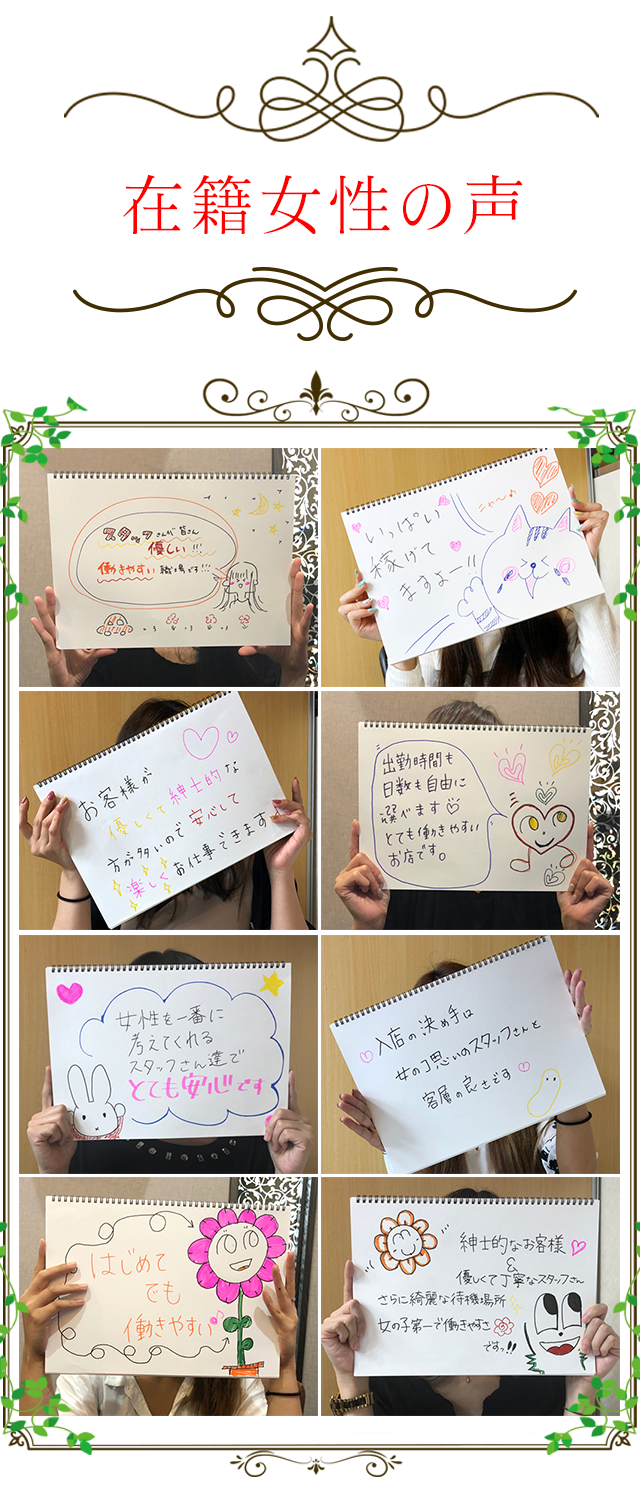 在籍女性の声
スタッフさんが皆さん
優しい!!!
働きやすい 職場です!!!
いっぱい
稼げて
ますよー!!
ニャ〜♪
お客様が
優しくて紳士的な
方が多いので安心して
楽しくお仕事できます
出勤時間も
日数も自由に
選べます♡
とても働きやすい
お店です。
女性を一番に
考えてくれる
スタッフさん達で
とても安心です
入店の決め手は
女の子思いのスタッフさんと
客層の良さです
はじめて
でも
働きやすい♪
紳士的なお客様
&
優しくて丁寧なスタッフさん
さらに綺麗な待機場所
女の子第一で働きやすさ
ですっ!!